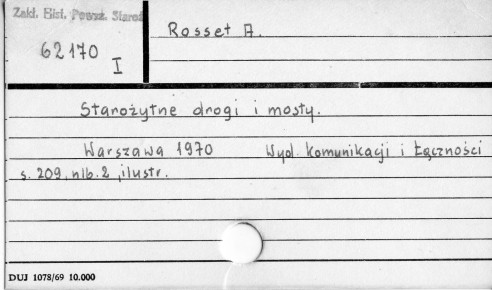 Zakł. Hist. Powsz. Staroż
62170
I
Rosset A.
Starożytne drogi i mosty.
Warszawa 1970 Wyd. komunikacji i Łączności
s. 209, nlb. 2, ilustr.
DUJ 1078/69 10.000